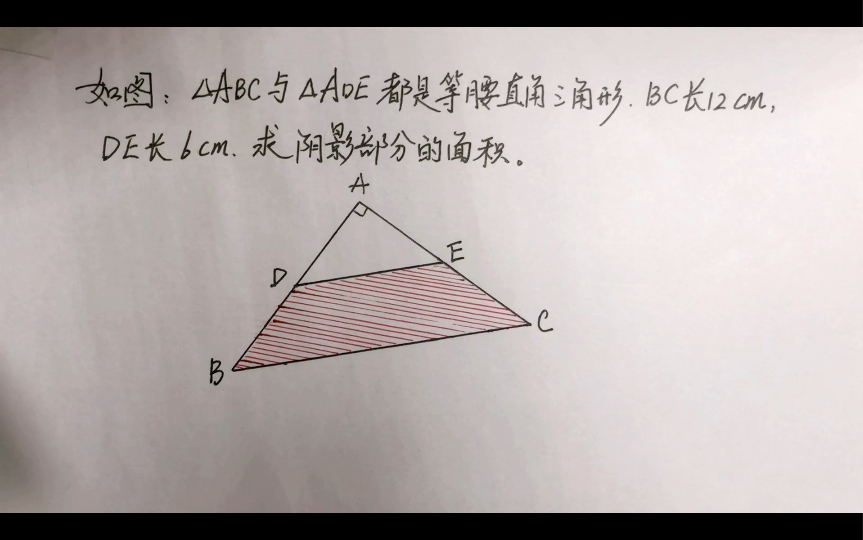 如图：△ABC与△ADE都是等腰直角三角形.BC长12cm,
DE长6cm.求阴影部分的面积。
A
E
D
C
B